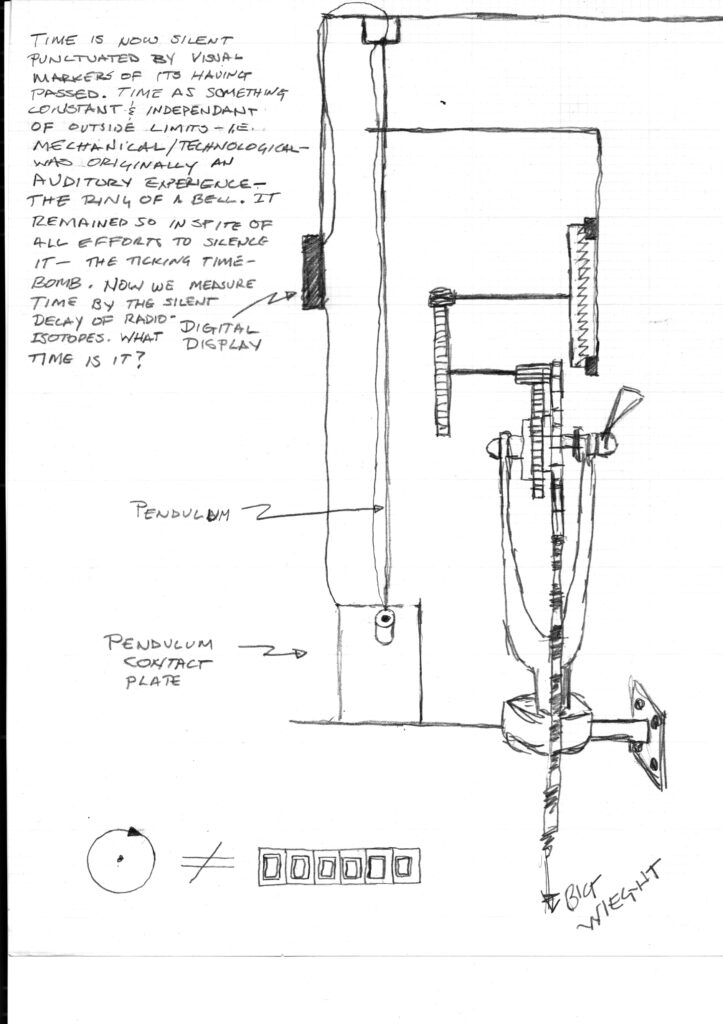 TIME IS NOW SILENT
PUNCTUATED BY VISUAL
MARKERS OF ITS HAVING
PASSED. TIME AS SOMETHING
CONSTANT & INDEPENDANT
OF OUTSIDE LIMITS - I.E.
MECHANICAL/TECHNOLOGICAL-
WAS ORIGINALLY AN
AUDITORY EXPERIENCE-
THE RING OF A BELL. IT
REMAINED SO IN SPITE OF
ALL EFFORTS TO SILENCE
IT - THE TICKING TIME-
BOMB. NOW WE MEASURE
TIME BY THE SILENT
DECAY OF RADIO-
ISOTOPES. WHAT
TIME IS IT?
DIGITAL
DISPLAY
PENDULUM
PENDULUM
CONTACT
PLATE
≠
0 0 0 0 0 0
BIG
WIEGHT